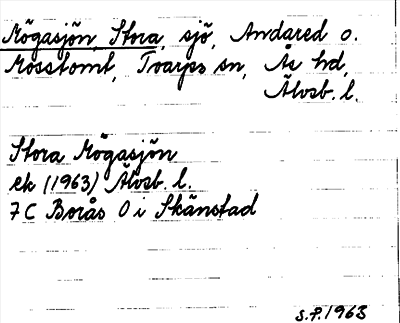 Mögasjön, Stora, sjö, Andared o.
Mosstomt, Tvarps sn, Ås hd,
Älvsb. l.
Stora Mögasjön
ek (1963) Älvsb. l.
7C Borås O i Skänstad
S.P. 1963